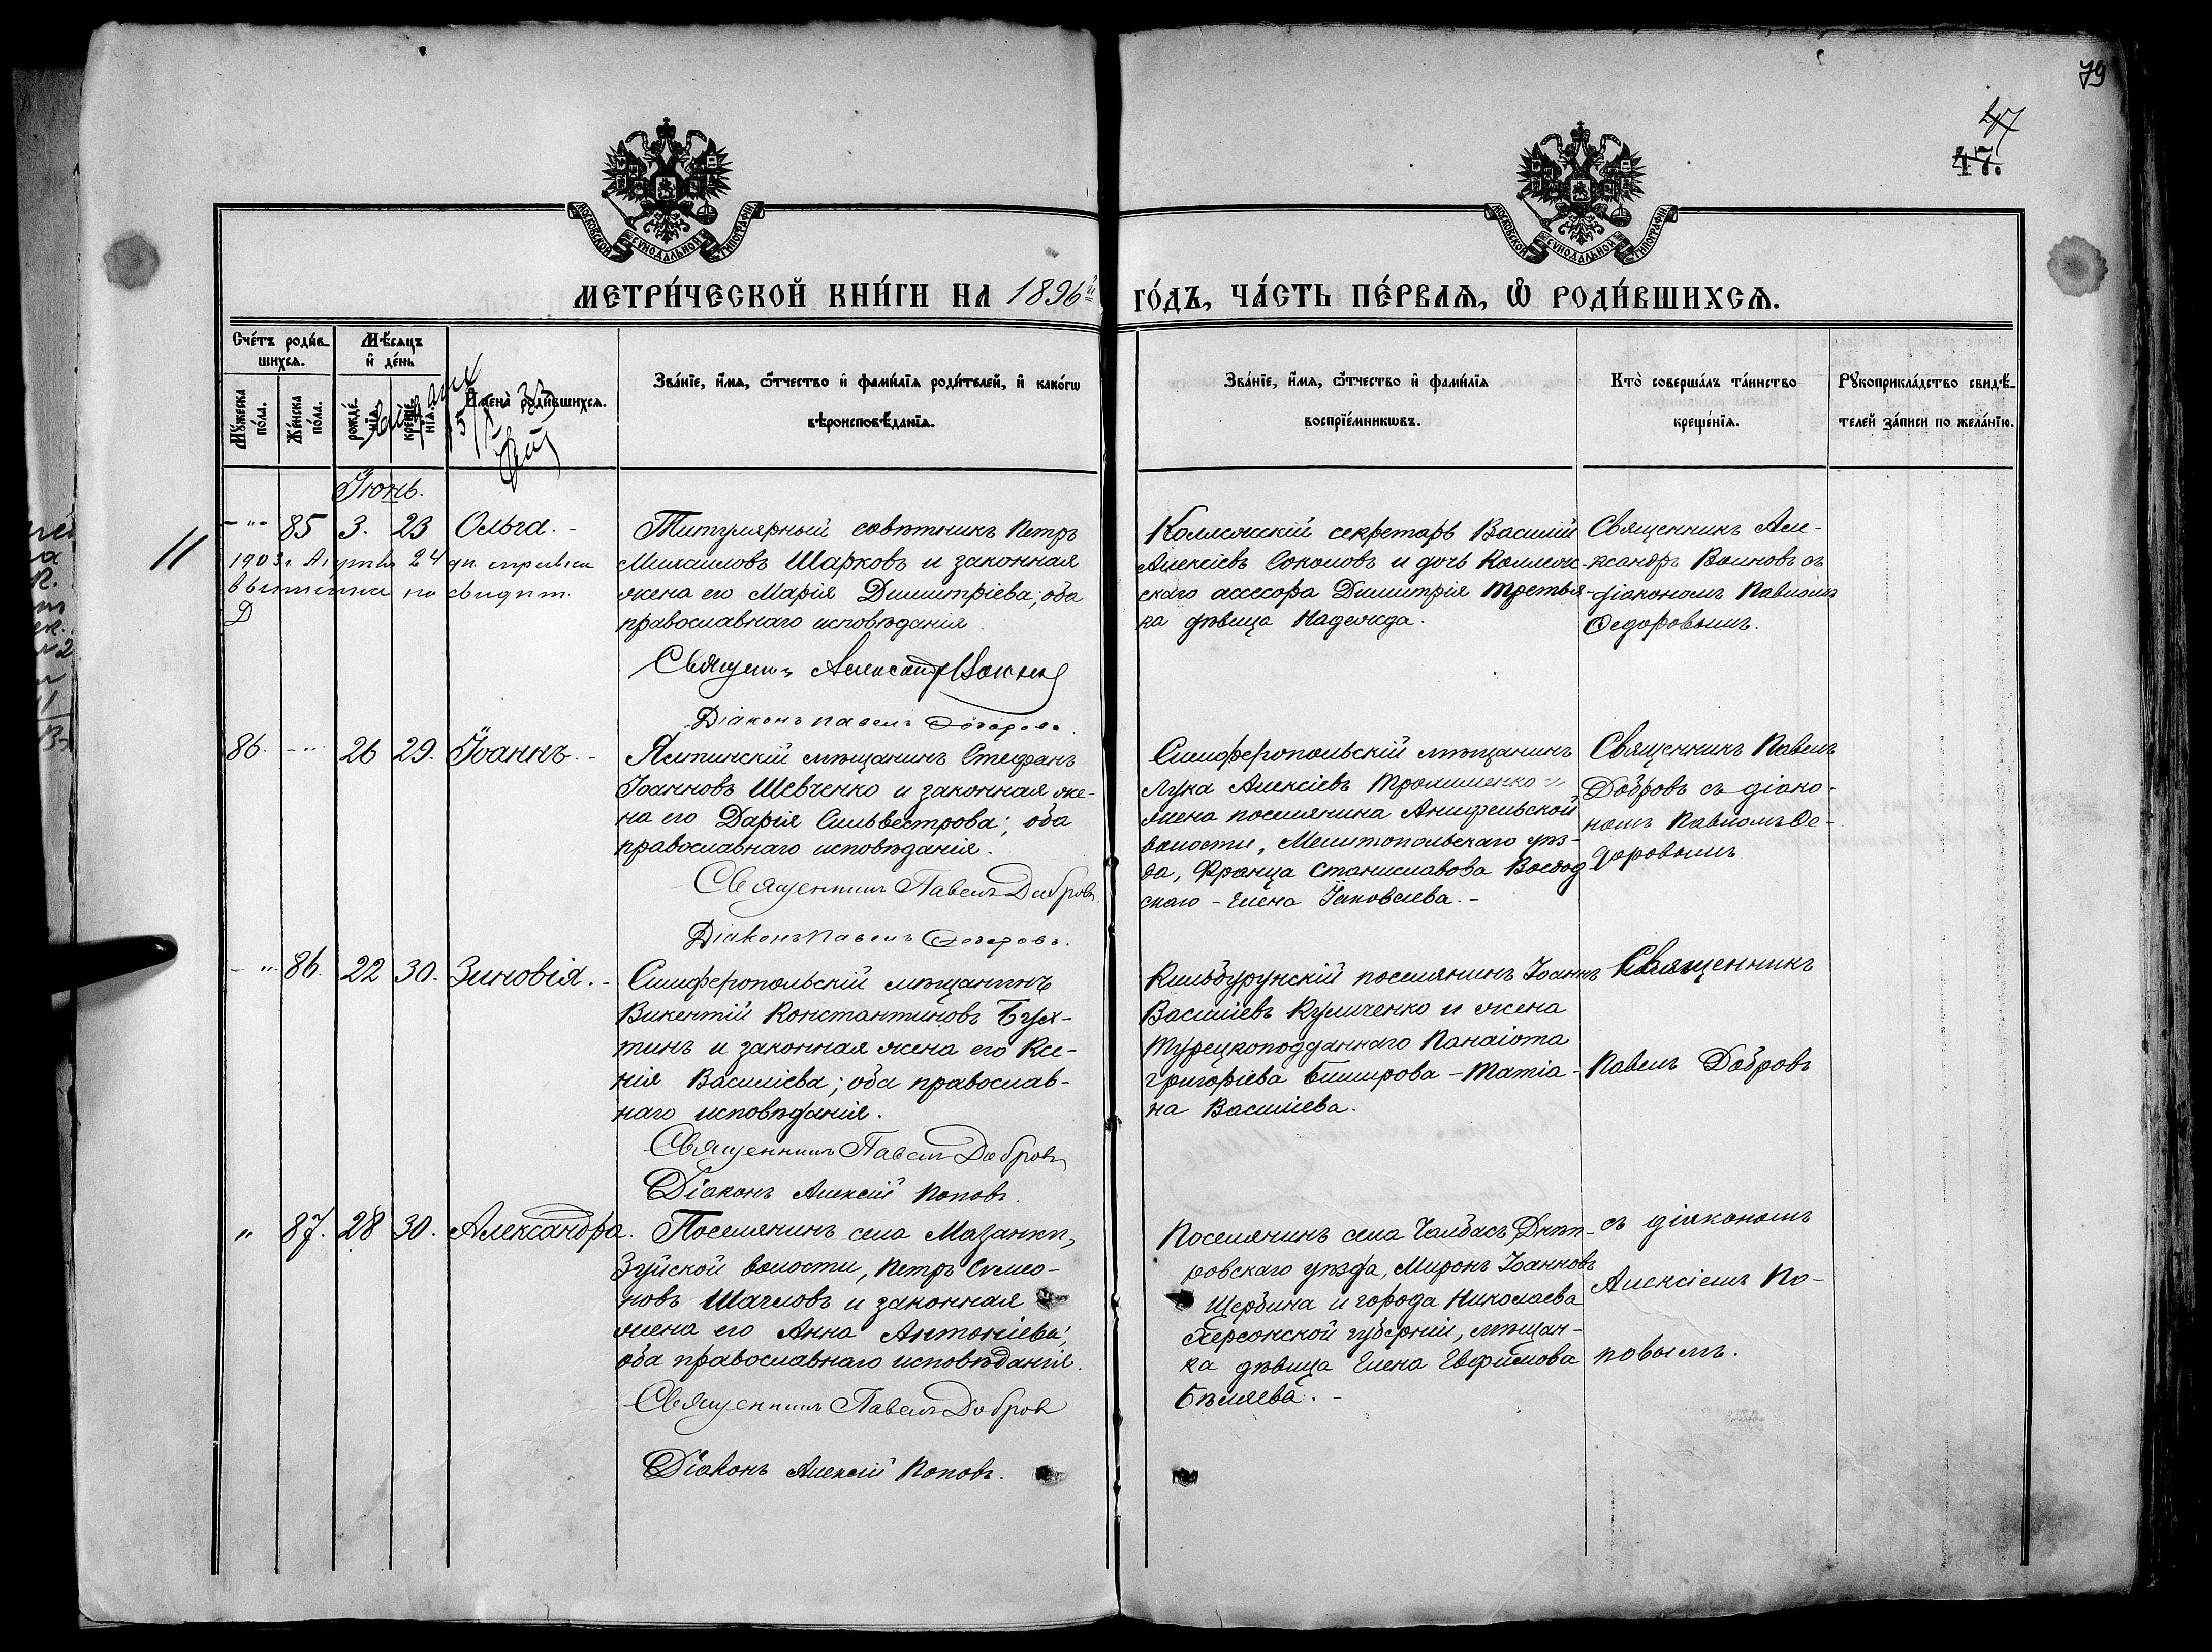 79
47
47.
МОСКОВСКОЙ СѴНОДАЛЬНОЙ ТИПОГРАФІИ
МОСКОВСКОЙ СѴНОДАЛЬНОЙ ТИПОГРАФІИ
МЕТРИ́ЧЕСКОЙ КНИ́ГИ НА 1896й ГО́ДЪ, ЧА́СТЬ ПЕ́РВАѦ, Ѽ РОДИ́ВШИХСѦ.
Сче́тъ роди́вшихсѧ.
Мꙋ́жеска по́ла.
Же́нска по́ла.
Мѣ́сяцъ и҆ де́нь
рожде́нїѧ.
креще́нїѧ.
И҆мена̀ роди́вшихсѧ.
Зва́нїе, и҆́мѧ, ѻ҆́тчество и҆ фами́лїѧ роди́телей, и҆ како́гѡ вѣроисповѣ́данїѧ.
Зва́нїе, и҆́мѧ, ѻ҆́тчество и҆ фами́лїѧ воспрїе́мникѡвъ.
Кто̀ соверша́лъ та́инство креще́нїѧ.
Рꙋкоприкла́дство свидѣ́телей за́писи по жела́нїю.
Іюнь.
-"- 85 3. 23 Ольга.-
1903 г. Августа 24 дн. справка
выписана по свидѣт.
Д
Титулярный совѣтникъ Петръ
Михаиловъ Шарковъ и законная
жена его Марія Димитріева, оба
православнаго исповѣданія.
Священ. Александръ
Діаконъ Павелъ Ѳедоровъ.
Коллежскій секретарь Василій
Алексіевъ Соколовъ и дочь Коллеж-
скаго ассесора Димитрія Третья-
ка дѣвица Надежда.
Священникъ Але-
ксандръ Воиновъ съ
діакономъ Павломъ
Ѳедоровымъ.
86. -"- 26 29. Іоаннъ.-
Ялтинскій мѣщанинъ Стефанъ
Іоанновъ Шевченко и законная же-
на его Дарія Сильвестрова; оба
православнаго исповѣданія.
Священникъ Павелъ Добровъ
Діаконъ Павелъ Ѳедоровъ.
Симферопольскій мѣщанинъ
Лука Алексіевъ и
жена поселянина
волости, Мелитопольскаго уѣз-
да, Франца Станиславова
скаго - Елена Іаковлева.-
Священникъ Павелъ
Добровъ съ діако-
номъ Павломъ Ѳе-
доровымъ
-"- 86. 22 30. Зиновія.-
Симферопольскій мѣщанинъ
Викентій Константиновъ Бух-
тинъ и законная жена его Ксе-
нія Василіева; оба православ-
наго исповѣданія.
Священникъ Павелъ Добровъ
Діаконъ Алексій Поповъ.
Кильбурунскій поселянинъ Іоаннъ
Василіевъ Куличенко и жена
турецкоподданнаго Панаіота
Григоріева - Матіа-
на Василіева.
Священникъ
Павелъ Добровъ
" 87. 28 30. Александра.
Поселянинъ села Мазанки,
Зуйской волости, Петръ Симео-
новъ Шагловъ и законная
жена его Анна Антоніева;
оба православнаго исповѣданія.
Священникъ Павелъ Добровъ
Діаконъ Алексій Поповъ.
Поселянинъ села Чалбасъ, Днѣп-
ровскаго уѣзда, Миронъ Іоанновъ
Щербина и города Николаева
Херсонской губерніи, мѣщан-
ка дѣвица Елена Евфимова
Бѣляева.-
съ діакономъ
Алексіемъ По-
повымъ.